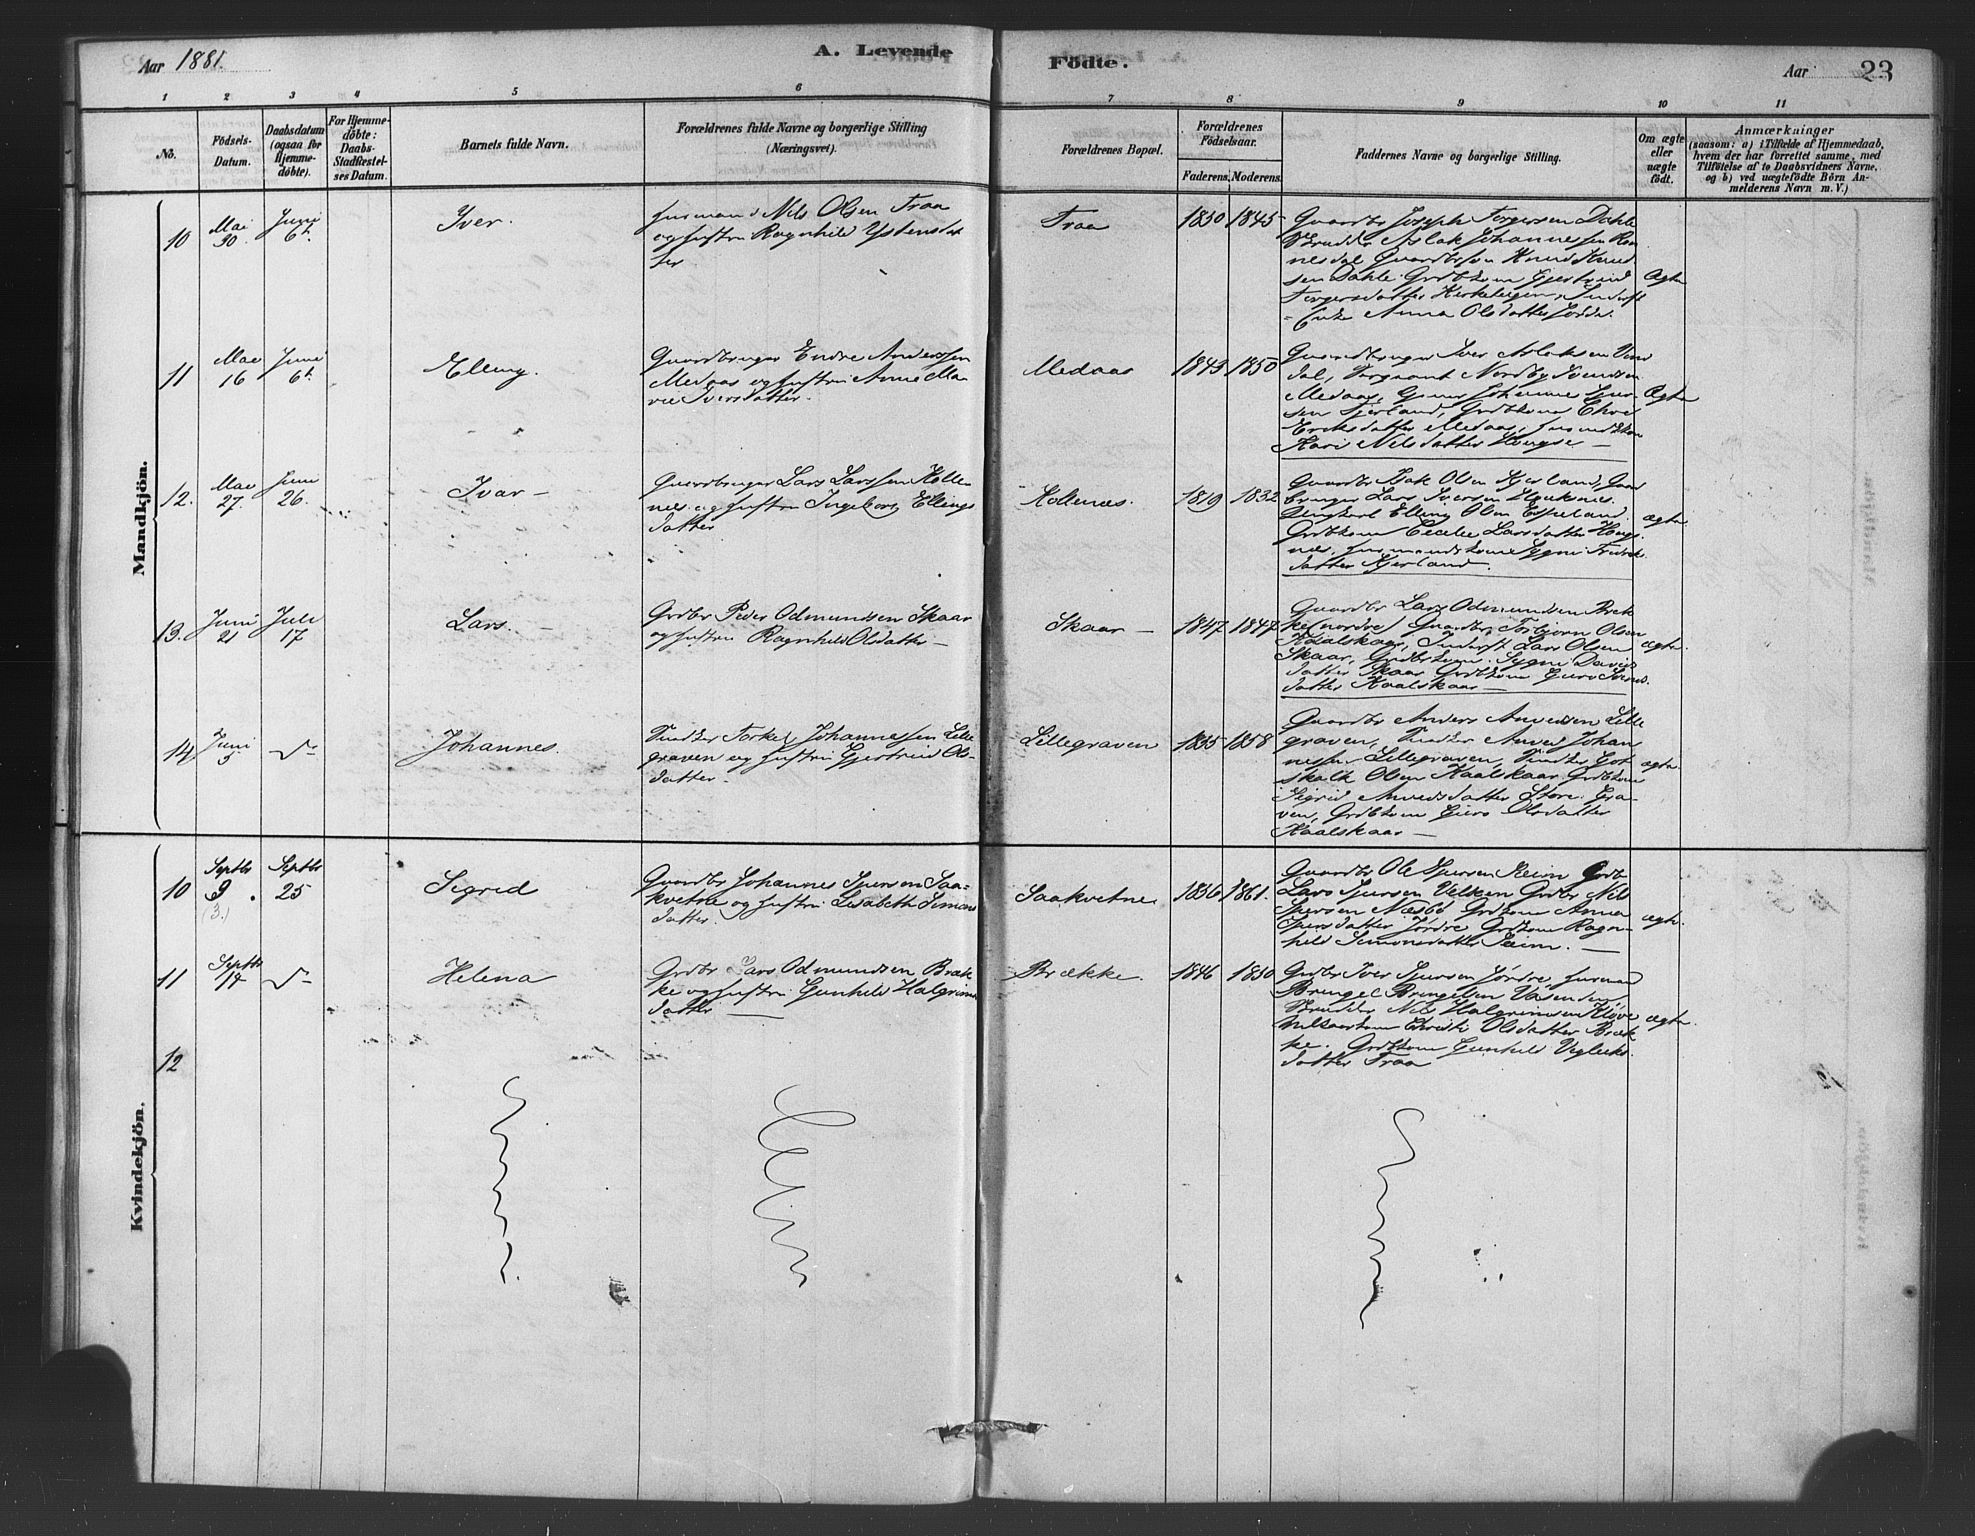 Aar 1881.
A. Levende
Födte.
Aar 23
1 2 3 4 5 6 7 8 9 10 11
No.
Födsels-
Datum.
Daabsdatum
(ogsaa for
Hjemme-
döbte).
For Hjemme-
döbte:
Daabs-
Stadfæstel-
ses Datum.
Barnets fulde Navn.
Forældrenes fulde Navne og borgerlige Stilling
(Næringsvei).
Forældrenes Bopæl.
Forældrenes
Födselsaar.
Faderens. Moderens.
Faddernes Navne og borgerlige Stilling.
Om ægte
eller
uægte
födt.
Anmærkninger
(saasom: a) i Tilfælde af Hjemmedaab,
hvem der har forrettet samme, med
Tilföielse af to Daabsvidners Navne,
og b) ved uægtefödte Börn An-
melderens Navn m. V.)
Mandkjön.
10
Mai
30.
Juni
6t.
Iver.
Husmand Nils Olsen Traa
og Hustru Ragnhild Ystensdat
ter
Traa
1850 1845
Gaardbr Joseph Torgersen Dahle
Aslak Johannessen
Gaardbrsøn Knud
sen Dahle. Grdbkone Gjertrud
Torgersdatter
Anna Olsdatter Jørdre.
Ægte
11
Mai
16
Juni
6t.
Elling.
Gaardbruger Endre Anderssen
Medaas og Hustru Anne Ma-
rie Iversdatter.
Medaas
1843 1850
Gaardbruger Iver Aslaksen
dal, Sergeant Nordby Svendsen
Medaas, Johannes
sen Gjerland, Grdbkone
Eriksdatter Medaas,
Kari Nilsdatter
Ægte
12.
Mai
27.
Juni
26.
Ivar
Gaardbruger Lars Larssen Holle-
næs og Hustru Ingeborg Ellings
datter
Holtenæs.
1819 1832
Gaardbr Isak Olsen Kjerland, Gaard
bruger Lars Iversen
Ungkarl Elling Olsen Espeland.
Grdbkone Cecilie Larsdatter
næs, Husmandskone Sygni
datter Kjerland.
ægte
13.
Juni
21
Juli
17
Lars.
Grdbr Peder Odmundsen Skaar
og Hustru Ragnhild Olsdatter
Skaar
1847 1847
Gaardbr Lars Odmundsen Bræk
ke (nordre) Gaardbr Torbjørn Olsen
Kaalskaar, Inderst Lars Olsen
Skaar, Grdbrkone Sygni Davids
datter Skaar Grdbkone Guro
datter Kaalskaar
ægte.
14
Juni
5
Johannes.
Inderst Torkel Johannessen Lille
graven og Hustru Gjertrud Ols-
datter.
Lillegraven
1855 1858
Gaardbr Anders Arvedsen Lille
graven, Arved Johan
nessen Lillegraven, Got
skalk Olsen Kaalskaar Grdbkone
Sigrid Arvedsdatter Store Gra-
ven, Grdbkone Guro Olsdatter
Kaalskaar
ægte.
Kvindekjön.
10
Septbr
9.
(3.)
Septbr
25
Sigrid
Gaardbr Johannes Sjursen Saa-
kvetne og Hustru Lisabeth Simons
datter
Saakvetne
1856 1861.
Gaardbr Ole Sjursen Seim Grdb
Lars Sjursen Velken Grdbr Nils
Sjursen Næsbø Grdbkone Anna
Sjursdatter Jørdre Grdbkone Ragn-
hild Simonsdatter Seim.
ægte.
11
Septbr
17
Helena
Grdbr Lars Odmundsen Bræk
ke og Hustru Gunhild Halgrims
datter
Brække
1846 1850
Grdbr Iver Sjursen Jørdre, Husmand
Bryngel Bryngelsen Vasenden
Nils Halgrimsen Kløve
Christi Olsdatter Bræk-
ke. Grdbkone Gunhild
datter Traa
ægte.
12